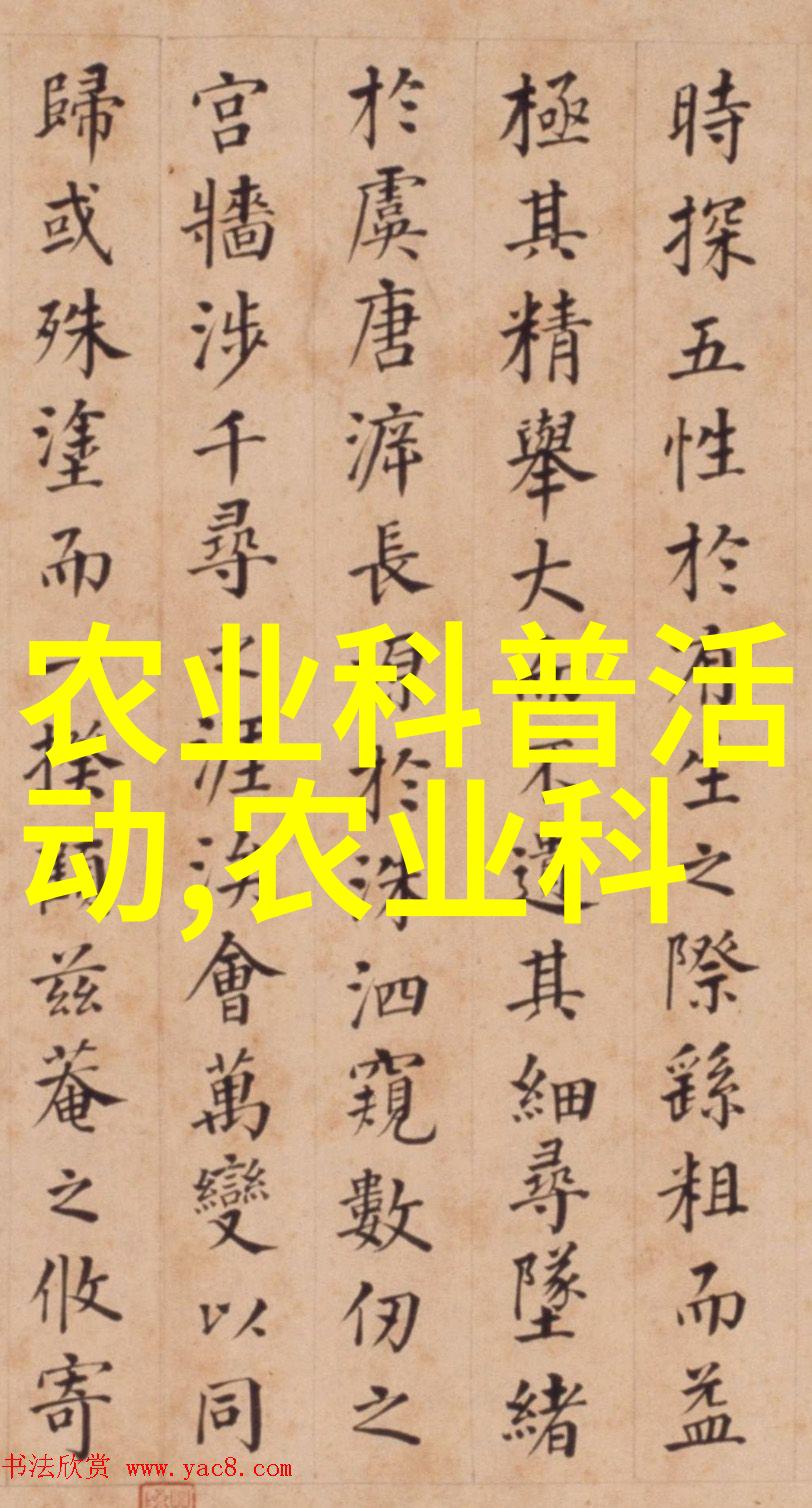 時探五性於有生之際繇粗而益
極其精舉大不遺其細尋墜緒
於虞唐長於洙泗窺數仞之
宮牆涉千尋之涯涘會萬變以同
歸或殊塗而一揆顧茲菴之攸寄
农业科普活
动,农业科
书法欣赏 www.yac8.com